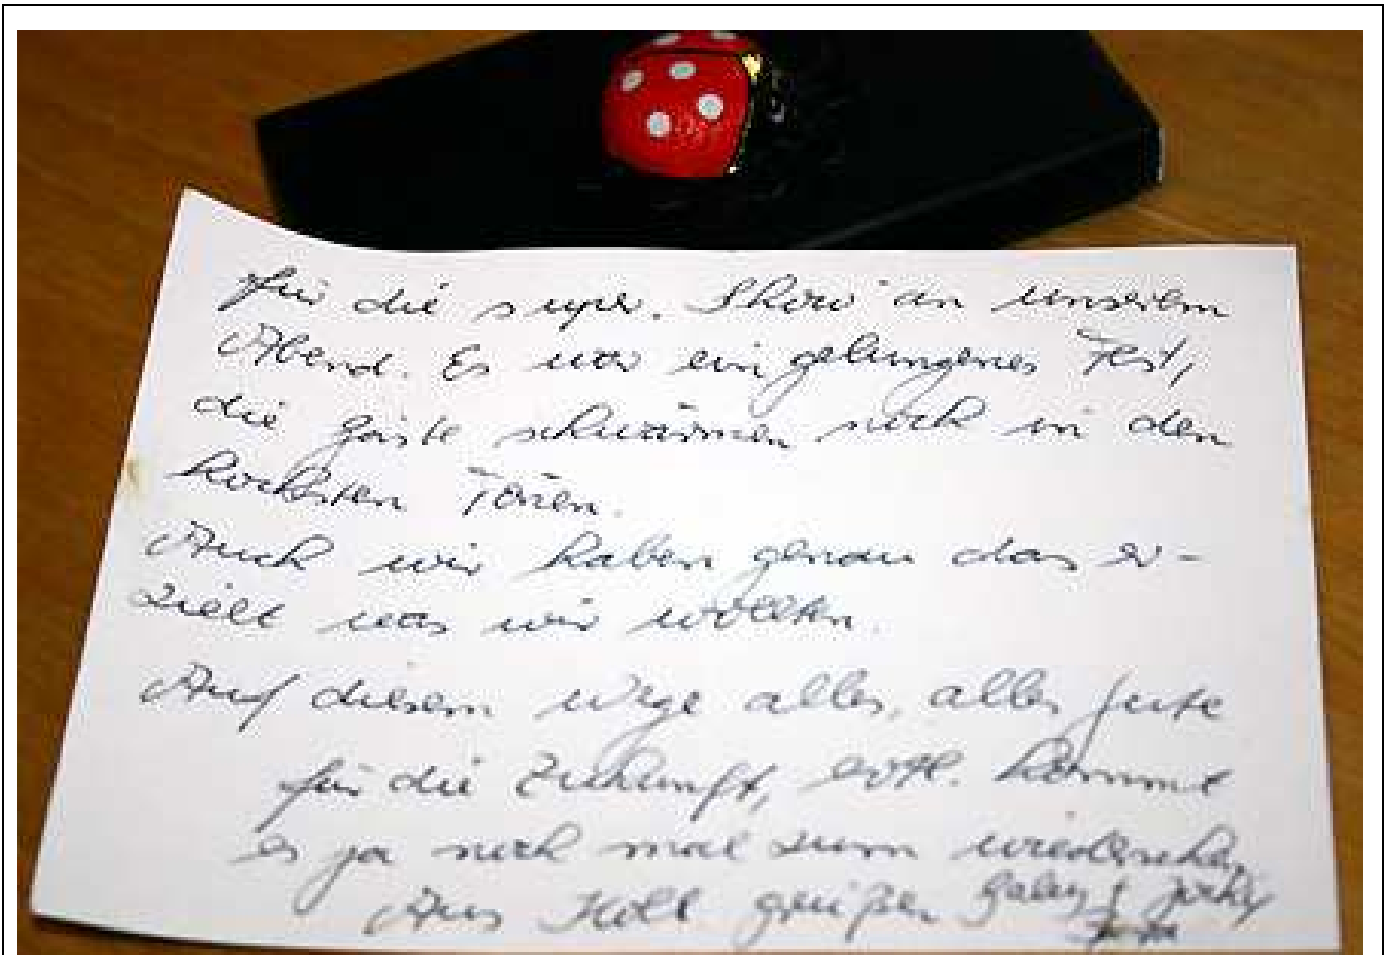 für die super. Show an unserem
Abend. Es war ein gelungenes Fest,
die Gäste schwärmen noch in den
höchsten Tönen.
Auch wir haben genau das er-
zielt was wir wollten.
Auf diesem Wege alles, alles Gute
für die Zukunft, evtl. kommt
es ja noch mal zum wiedersehen
Aus Köll grüßen Gaby &